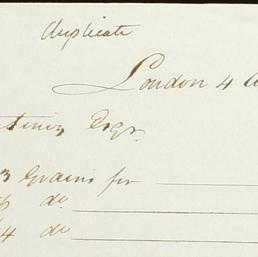 duplicate
London 4
Esqr.
Grains for
do
4 do